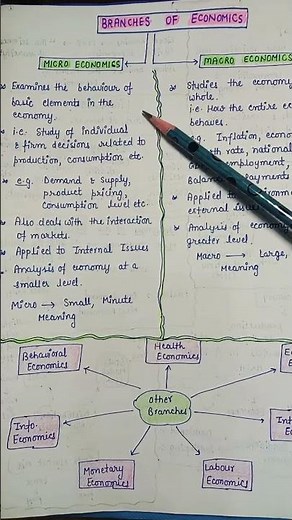 BRANCHES OF ECONOMICS
MICRO ECONOMICS
Examines the behaviour of
basic elements in the
economy.
i.e. Study of individual
& firm decisions related to
production, consumption etc.
e.g. Demand & Supply,
product pricing,
Consumption level etc.
Also deals with the interaction
of markets.
Applied to Internal Issues
Analysis of economy at a
smaller level.
Micro → Small, Minute
Meaning
MACRO ECONOMICS
Studies the economy
whole.
i.e. How the entire
behaves.
Inflation,
rate, national
employment,
Applied
external
Analysis of
greater level.
Macro → Large,
Meaning
Behavioral
Economics
Health
Economics
Other
Branches
Info.
Economics
Monetary
Economics
Labour
Economics